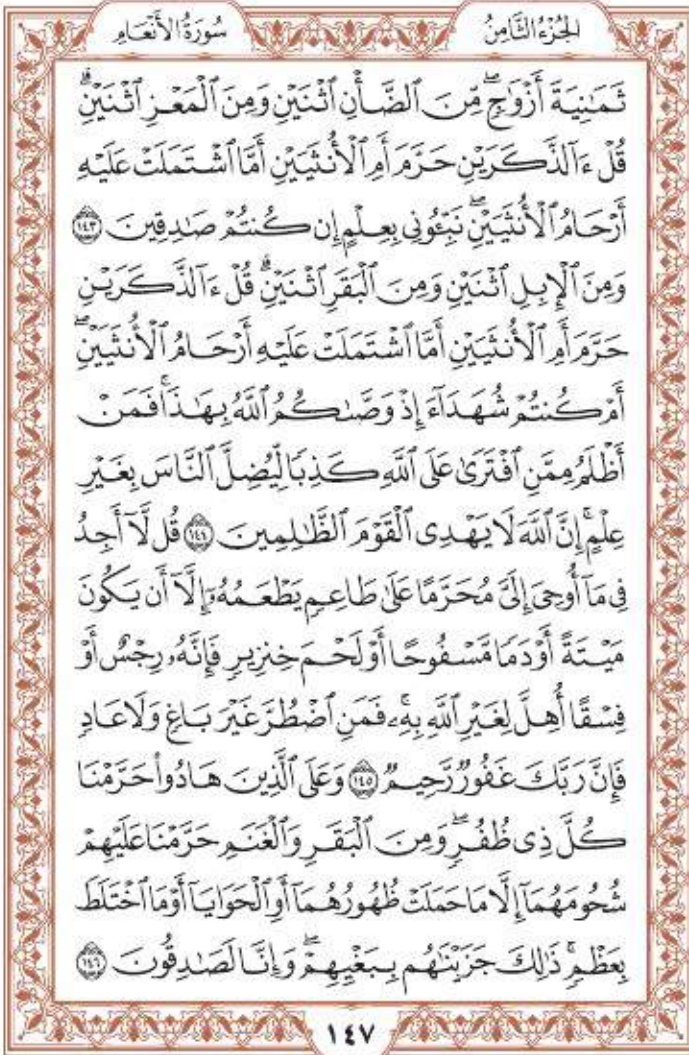 الجُزْءُ الثَّامِنُ
سُورَةُ الأَنْعَامِ
ثَمَٰنِيَةَ أَزْوَٰجٖۖ مِّنَ ٱلضَّأْنِ ٱثْنَيْنِ وَمِنَ ٱلْمَعْزِ ٱثْنَيْنِۗ
قُلْ ءَآلذَّكَرَيْنِ حَرَّمَ أَمِ ٱلْأُنثَيَيْنِ أَمَّا ٱشْتَمَلَتْ عَلَيْهِ
أَرْحَامُ ٱلْأُنثَيَيْنِۖ نَبِّـُٔونِي بِعِلْمٍ إِن كُنتُمْ صَٰدِقِينَ ١٤٣
وَمِنَ ٱلْإِبِلِ ٱثْنَيْنِ وَمِنَ ٱلْبَقَرِ ٱثْنَيْنِۗ قُلْ ءَآلذَّكَرَيْنِ
حَرَّمَ أَمِ ٱلْأُنثَيَيْنِ أَمَّا ٱشْتَمَلَتْ عَلَيْهِ أَرْحَامُ ٱلْأُنثَيَيْنِۖ
أَمْ كُنتُمْ شُهَدَآءَ إِذْ وَصَّىٰكُمُ ٱللَّهُ بِهَٰذَاۚ فَمَنْ
أَظْلَمُ مِمَّنِ ٱفْتَرَىٰ عَلَى ٱللَّهِ كَذِبًا لِّيُضِلَّ ٱلنَّاسَ بِغَيْرِ
عِلْمٍۚ إِنَّ ٱللَّهَ لَا يَهْدِى ٱلْقَوْمَ ٱلظَّٰلِمِينَ ١٤٤ قُل لَّآ أَجِدُ
فِى مَآ أُوحِىَ إِلَىَّ مُحَرَّمًا عَلَىٰ طَاعِمٍ يَطْعَمُهُۥٓ إِلَّآ أَن يَكُونَ
مَيْتَةً أَوْ دَمًا مَّسْفُوحًا أَوْ لَحْمَ خِنزِيرٍ فَإِنَّهُۥ رِجْسٌ أَوْ
فِسْقًا أُهِلَّ لِغَيْرِ ٱللَّهِ بِهِۦۚ فَمَنِ ٱضْطُرَّ غَيْرَ بَاغٍ وَلَا عَادٍ
فَإِنَّ رَبَّكَ غَفُورٌ رَّحِيمٌ ١٤٥ وَعَلَى ٱلَّذِينَ هَادُوا۟ حَرَّمْنَا
كُلَّ ذِى ظُفُرٍۖ وَمِنَ ٱلْبَقَرِ وَٱلْغَنَمِ حَرَّمْنَا عَلَيْهِمْ
شُحُومَهُمَآ إِلَّا مَا حَمَلَتْ ظُهُورُهُمَآ أَوِ ٱلْحَوَايَآ أَوْ مَا ٱخْتَلَطَ
بِعَظْمٍۚ ذَٰلِكَ جَزَيْنَٰهُم بِبَغْيِهِمْۖ وَإِنَّا لَصَٰدِقُونَ ١٤٦
١٤٧